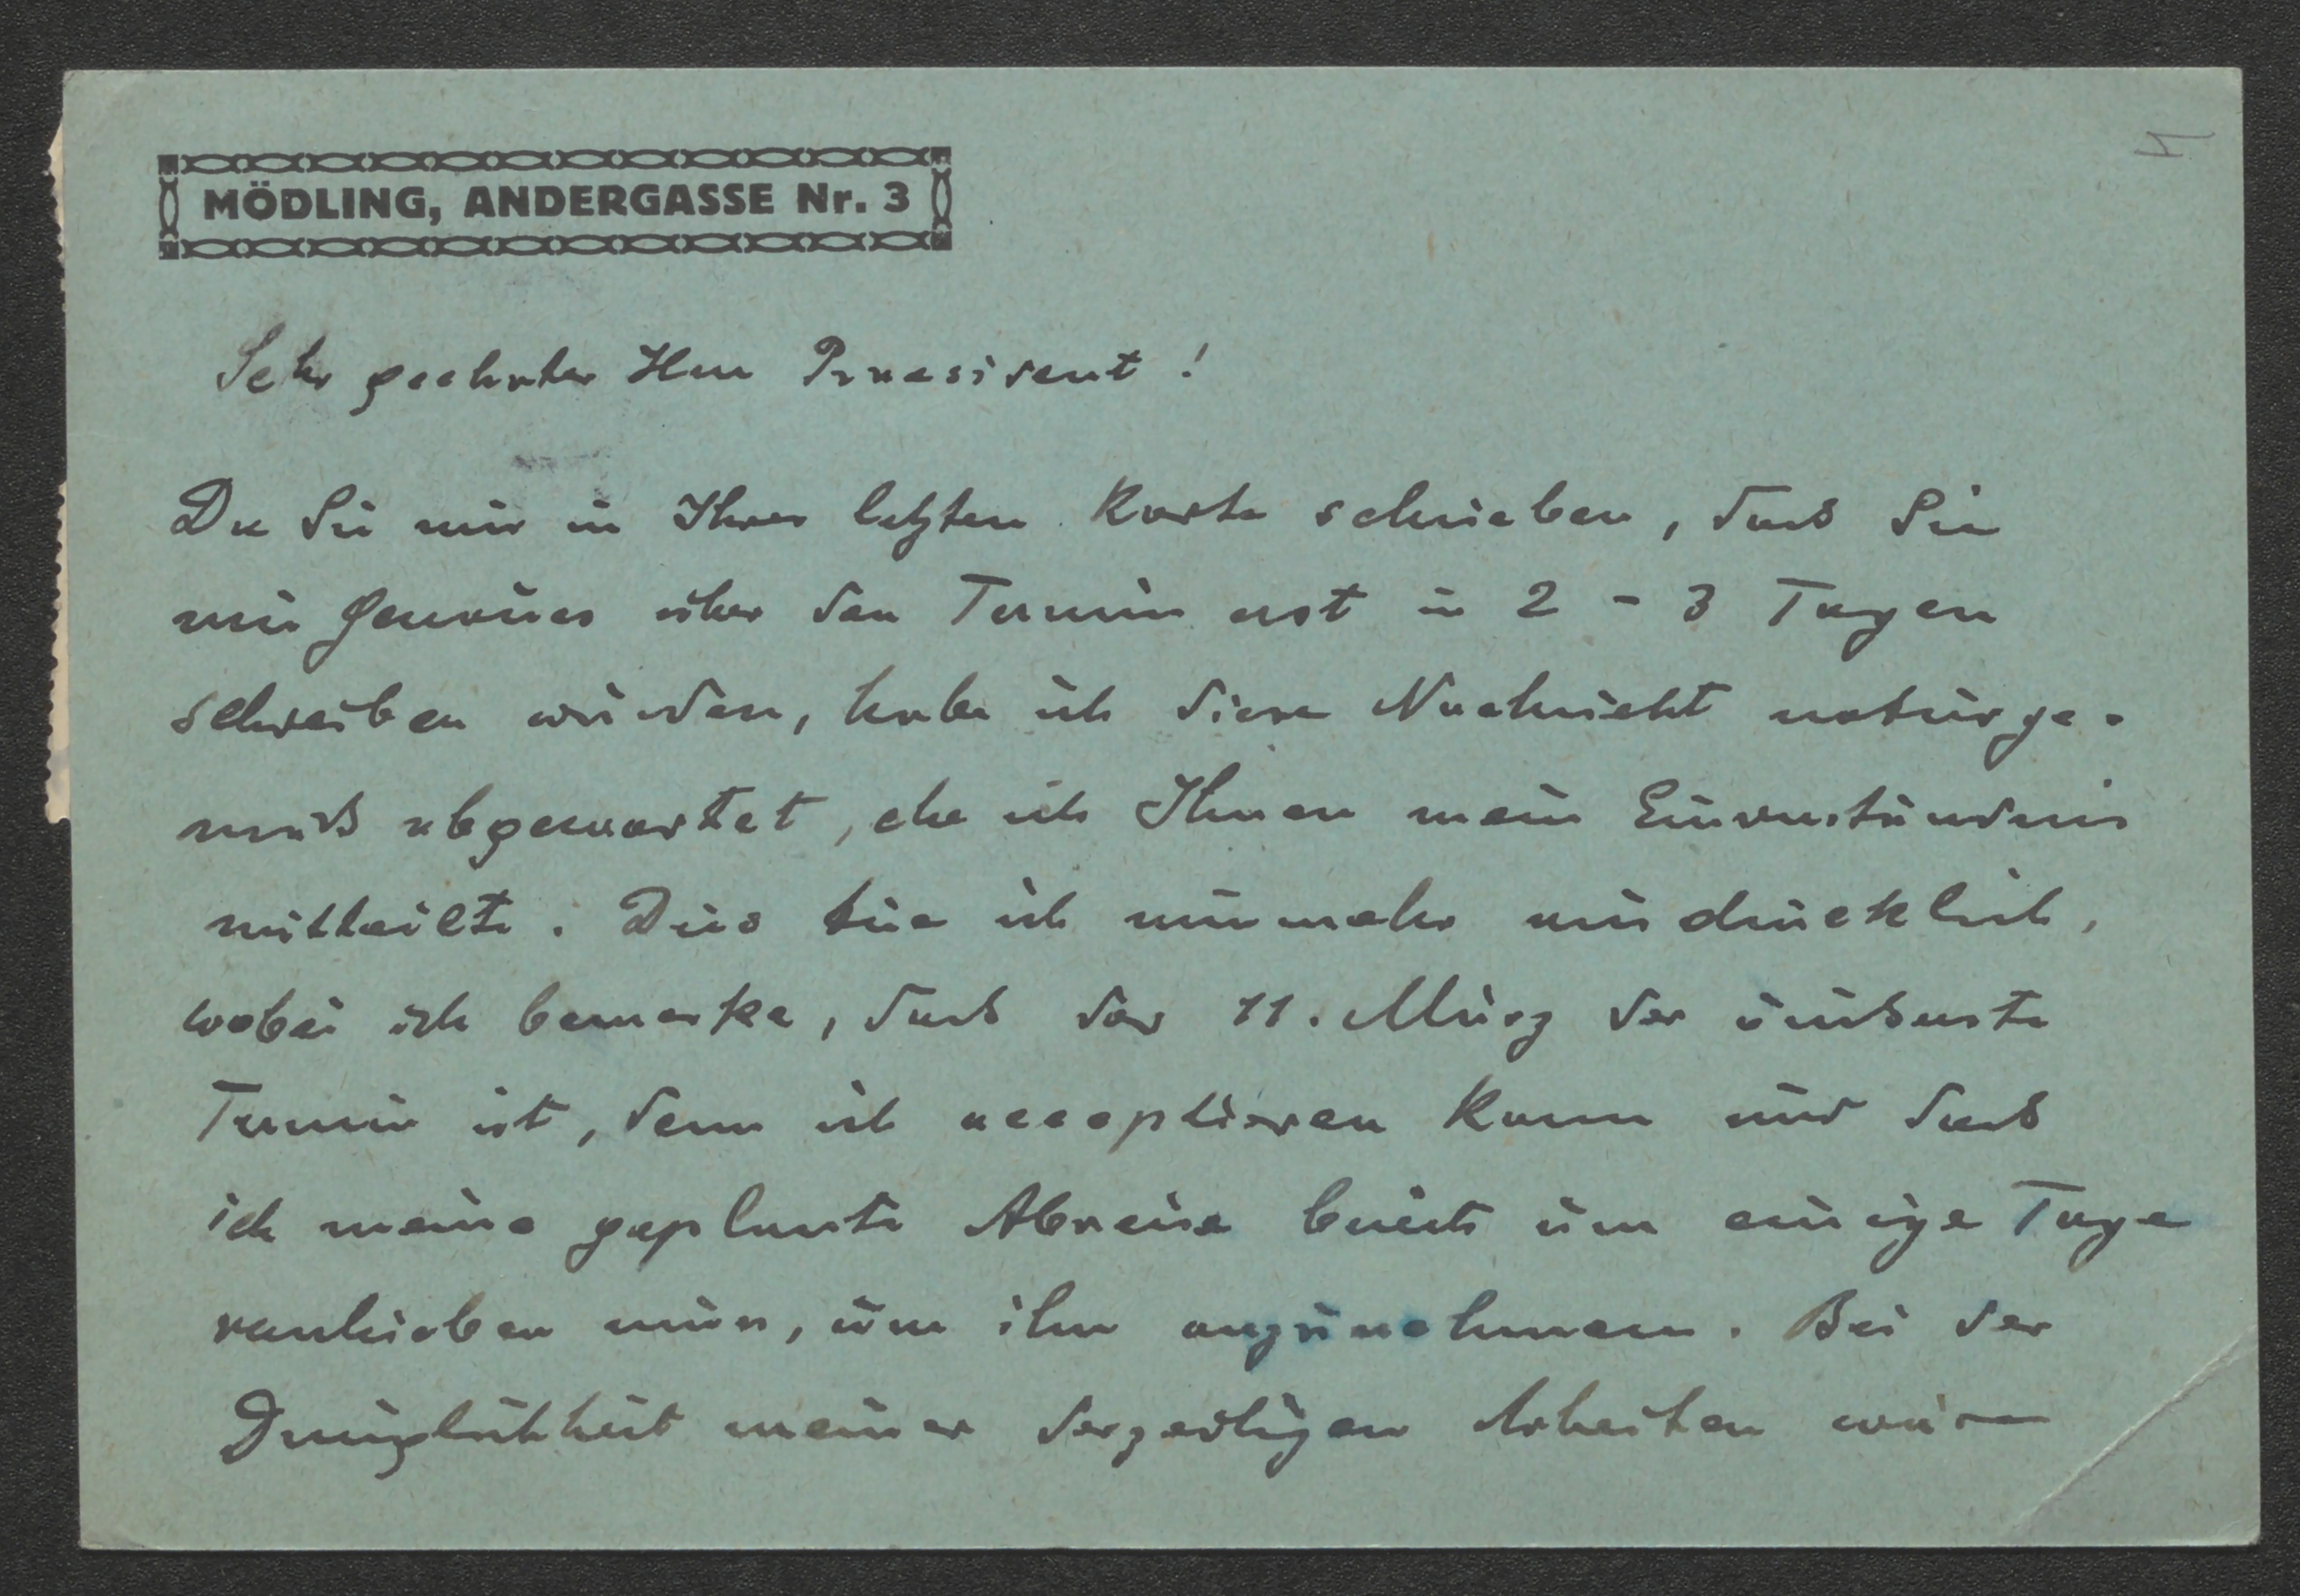 MÖDLING, ANDERGASSE Nr. 3
Sehr geehrter Herr Praesident!
Da Sie mir in Ihrer letzten Karte schrieben, dass Sie
mir Genaues über den Termin erst in 2 - 3 Tagen
schreiben würden, habe ich diese Nachricht naturge-
mäß abgewartet, ehe ich Ihnen mein Einverständnis
mitteilte. Dies tue ich nunmehr ausdrücklich,
wobei ich bemerke, dass der 11. März der äußerste
Termin ist, denn ich acceptieren kann und dass
ich meine geplante Abreise bereits um einige Tage
verschieben muss, um ihn anzunehmen. Bei der
Dringlichkeit meiner derzeitigen Arbeiten wäre